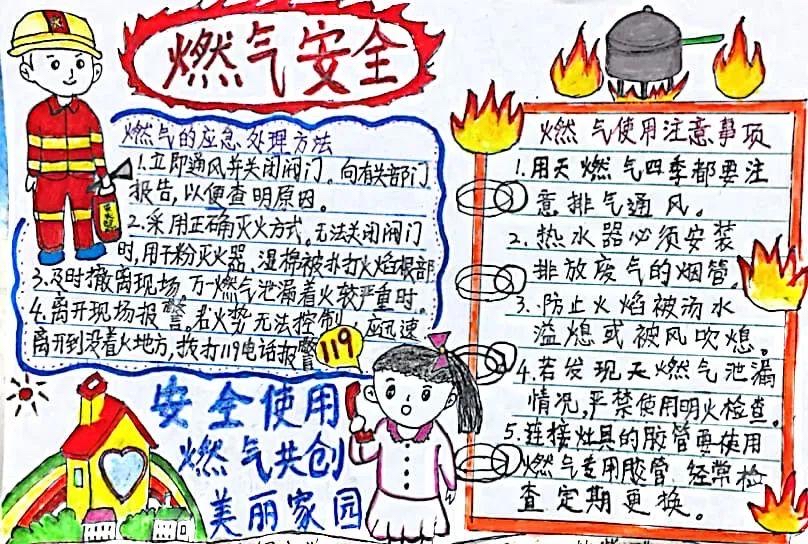 燃气安全
燃气的应急处理方法
1.立即通风并关闭阀门。向有关部门
报告,以便查明原因。
2.采用正确灭火方式。无法关闭阀门
时,用干粉灭火器、湿棉被扑打火焰根部
3.及时撤离现场,万一燃气泄漏着火较严重时。
4.离开现场报警。若火势无法控制,应迅速
离开到没着火地方,拨打119电话报警
119
安全使用
燃气共创
美丽家园
燃气使用注意事项
1.用天燃气四季都要注
意排气通风。
2.热水器必须安装
排放废气的烟管。
3.防止火焰被汤水
溢熄或被风吹熄。
4.若发现天燃气泄漏
情况,严禁使用明火检查。
5.连接灶具的胶管要使用
燃气专用胶管,经常检
查定期更换。